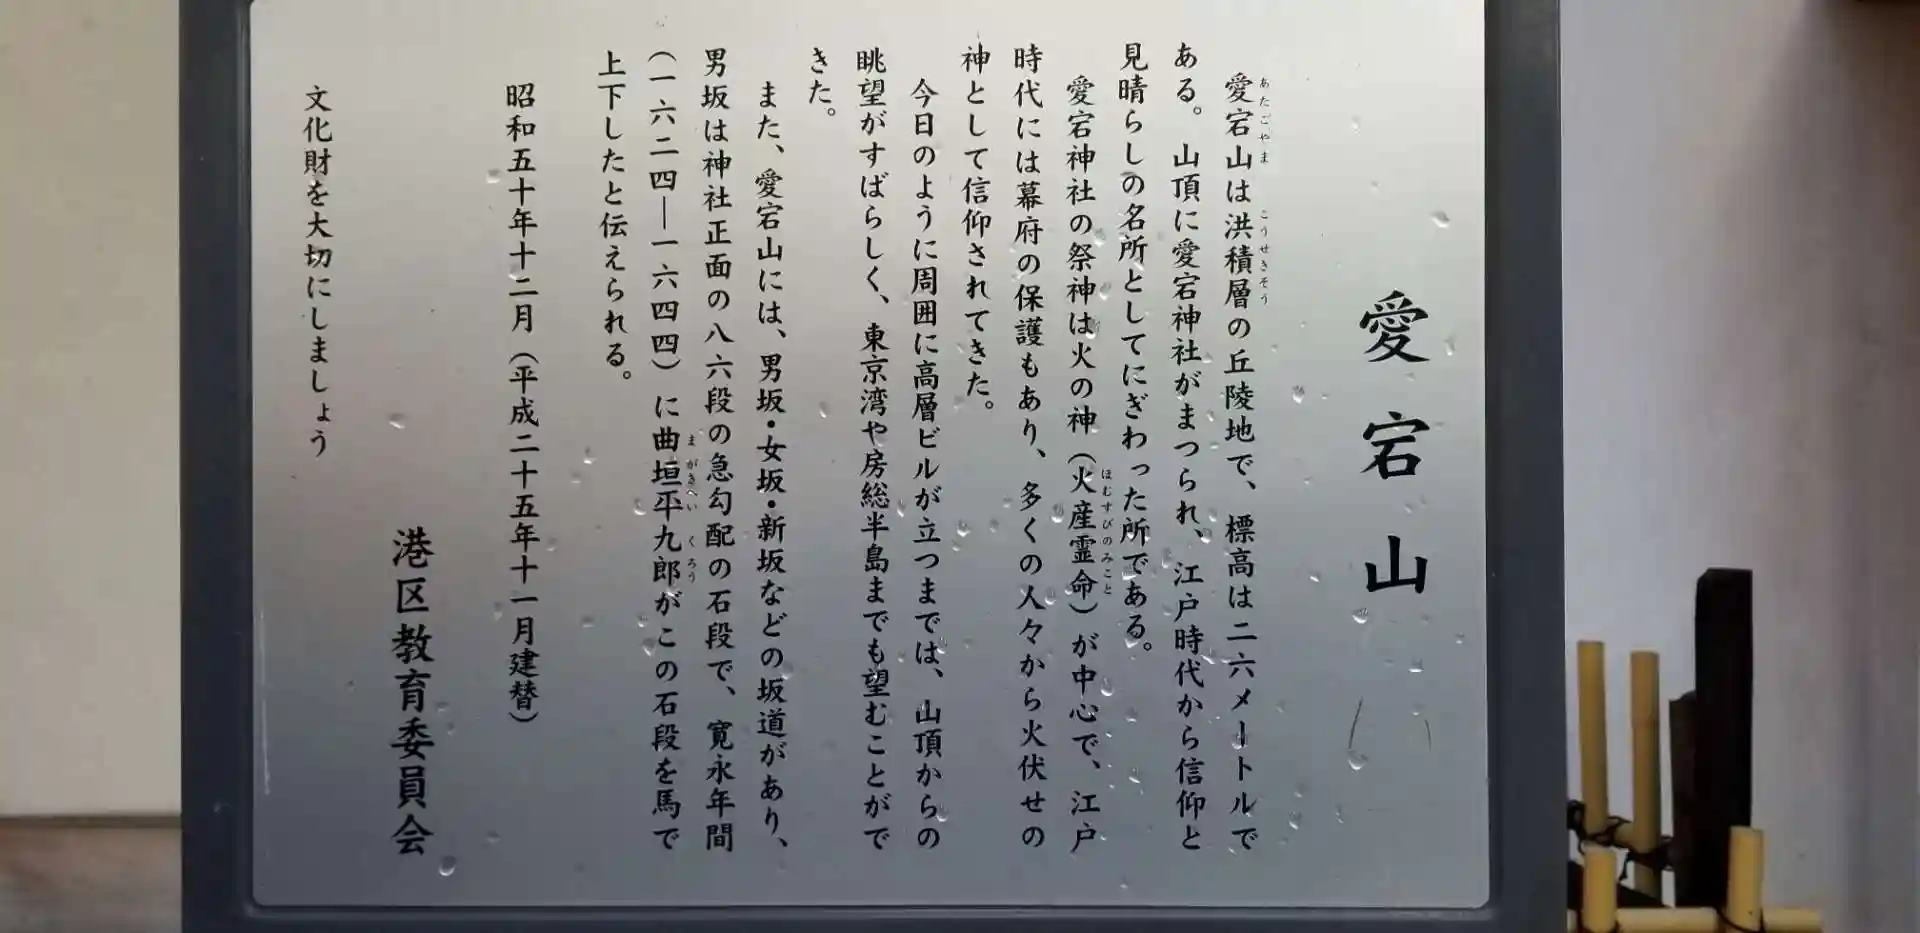 愛宕山
愛宕山は洪積層の丘陵地で、標高は二六メートルで
あたごやま こうせきそう
ある。山頂に愛宕神社がまつられ、江戸時代から信仰と
見晴らしの名所としてにぎわった所である。
愛宕神社の祭神は火の神（火産霊命）が中心で、江戸
ほむすびのみこと
時代には幕府の保護もあり、多くの人々から火伏せの
神として信仰されてきた。
今日のように周囲に高層ビルが立つまでは、山頂からの
眺望がすばらしく、東京湾や房総半島までも望むことがで
きた。
また、愛宕山には、男坂・女坂・新坂などの坂道があり、
男坂は神社正面の八六段の急勾配の石段で、寛永年間
（一六二四―一六四四）に曲垣平九郎がこの石段を馬で
まがきへいくろう
上下したと伝えられる。
昭和五十年十二月（平成二十五年十一月建替）
港区教育委員会
文化財を大切にしましょう